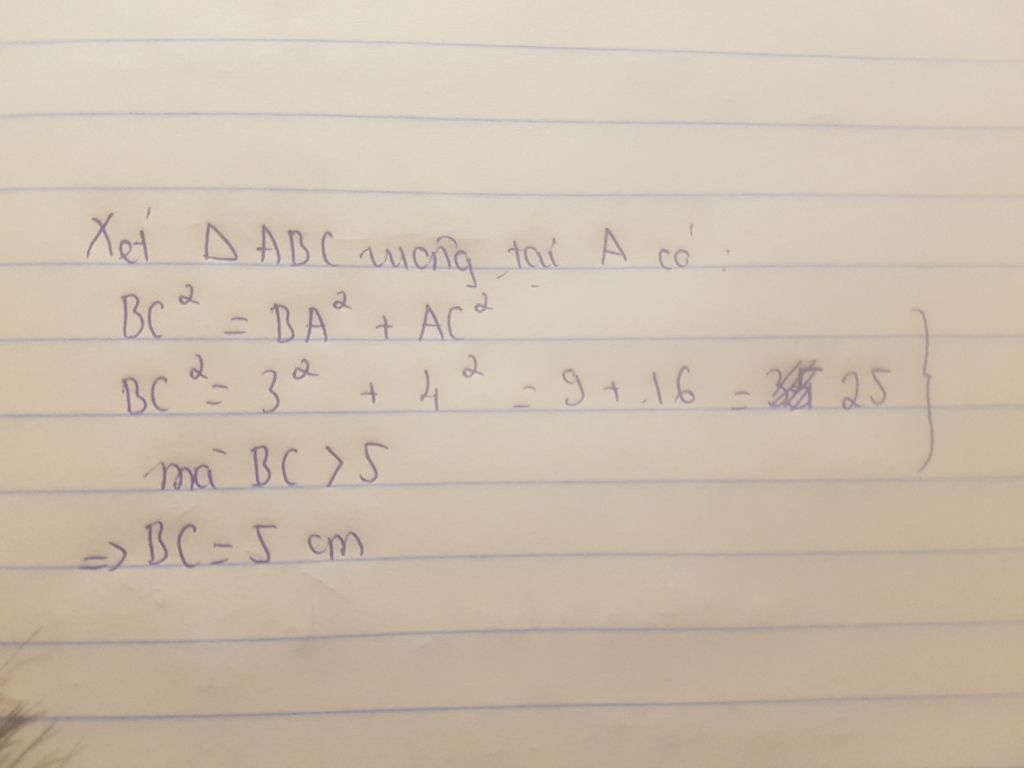 Xét Δ ABC vuông tại A có:
BC² = BA² + AC²
BC² = 3² + 4² = 9 + 16 = 25
mà BC > 5
=> BC = 5 cm